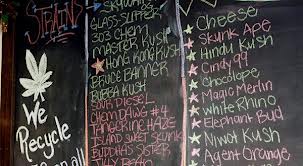 STRAINS
We
Recycle
SKYWALKER
GLASS SLIPPER
303 CHEM
MASTER KUSH
HONG KONG KUSH
BRUCE BANNER
BUBBA KUSH
SOUR DIESEL
CHEM DAWG #4
TANGERINE HAZE
ISLAND SWEET SKUNK
BUDDHAS SISTER
Cheese
Skunk Ape
Hindu Kush
Cindy 99
Chocolope
Magic Merlin
White Rhino
Elephant Bud
Niwot Kush
Agent Orange